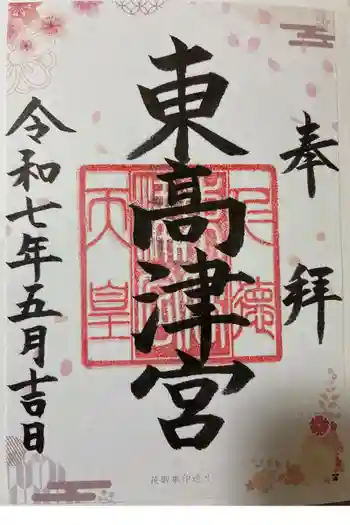 奉拝
東高津宮
仁徳
天皇
令和七年五月吉日